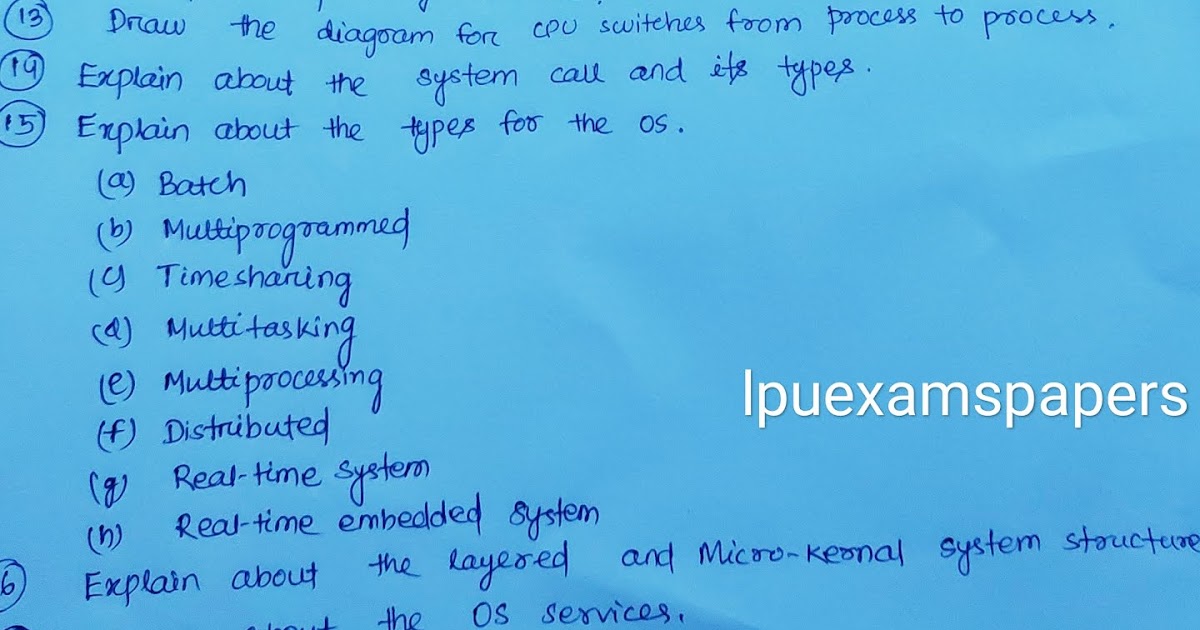 (13) Draw the diagram for CPU switches from process to process.
(14) Explain about the system call and its types.
(15) Explain about the types for the OS.
(a) Batch
(b) Multiprogrammed
(c) Timesharing
(d) Multitasking
(e) Multiprocessing
lpuexamspapers
(f) Distributed
(g) Real-time system
(h) Real-time embedded system
6 Explain about the layered and Micro-kernal system structure
about the OS services.